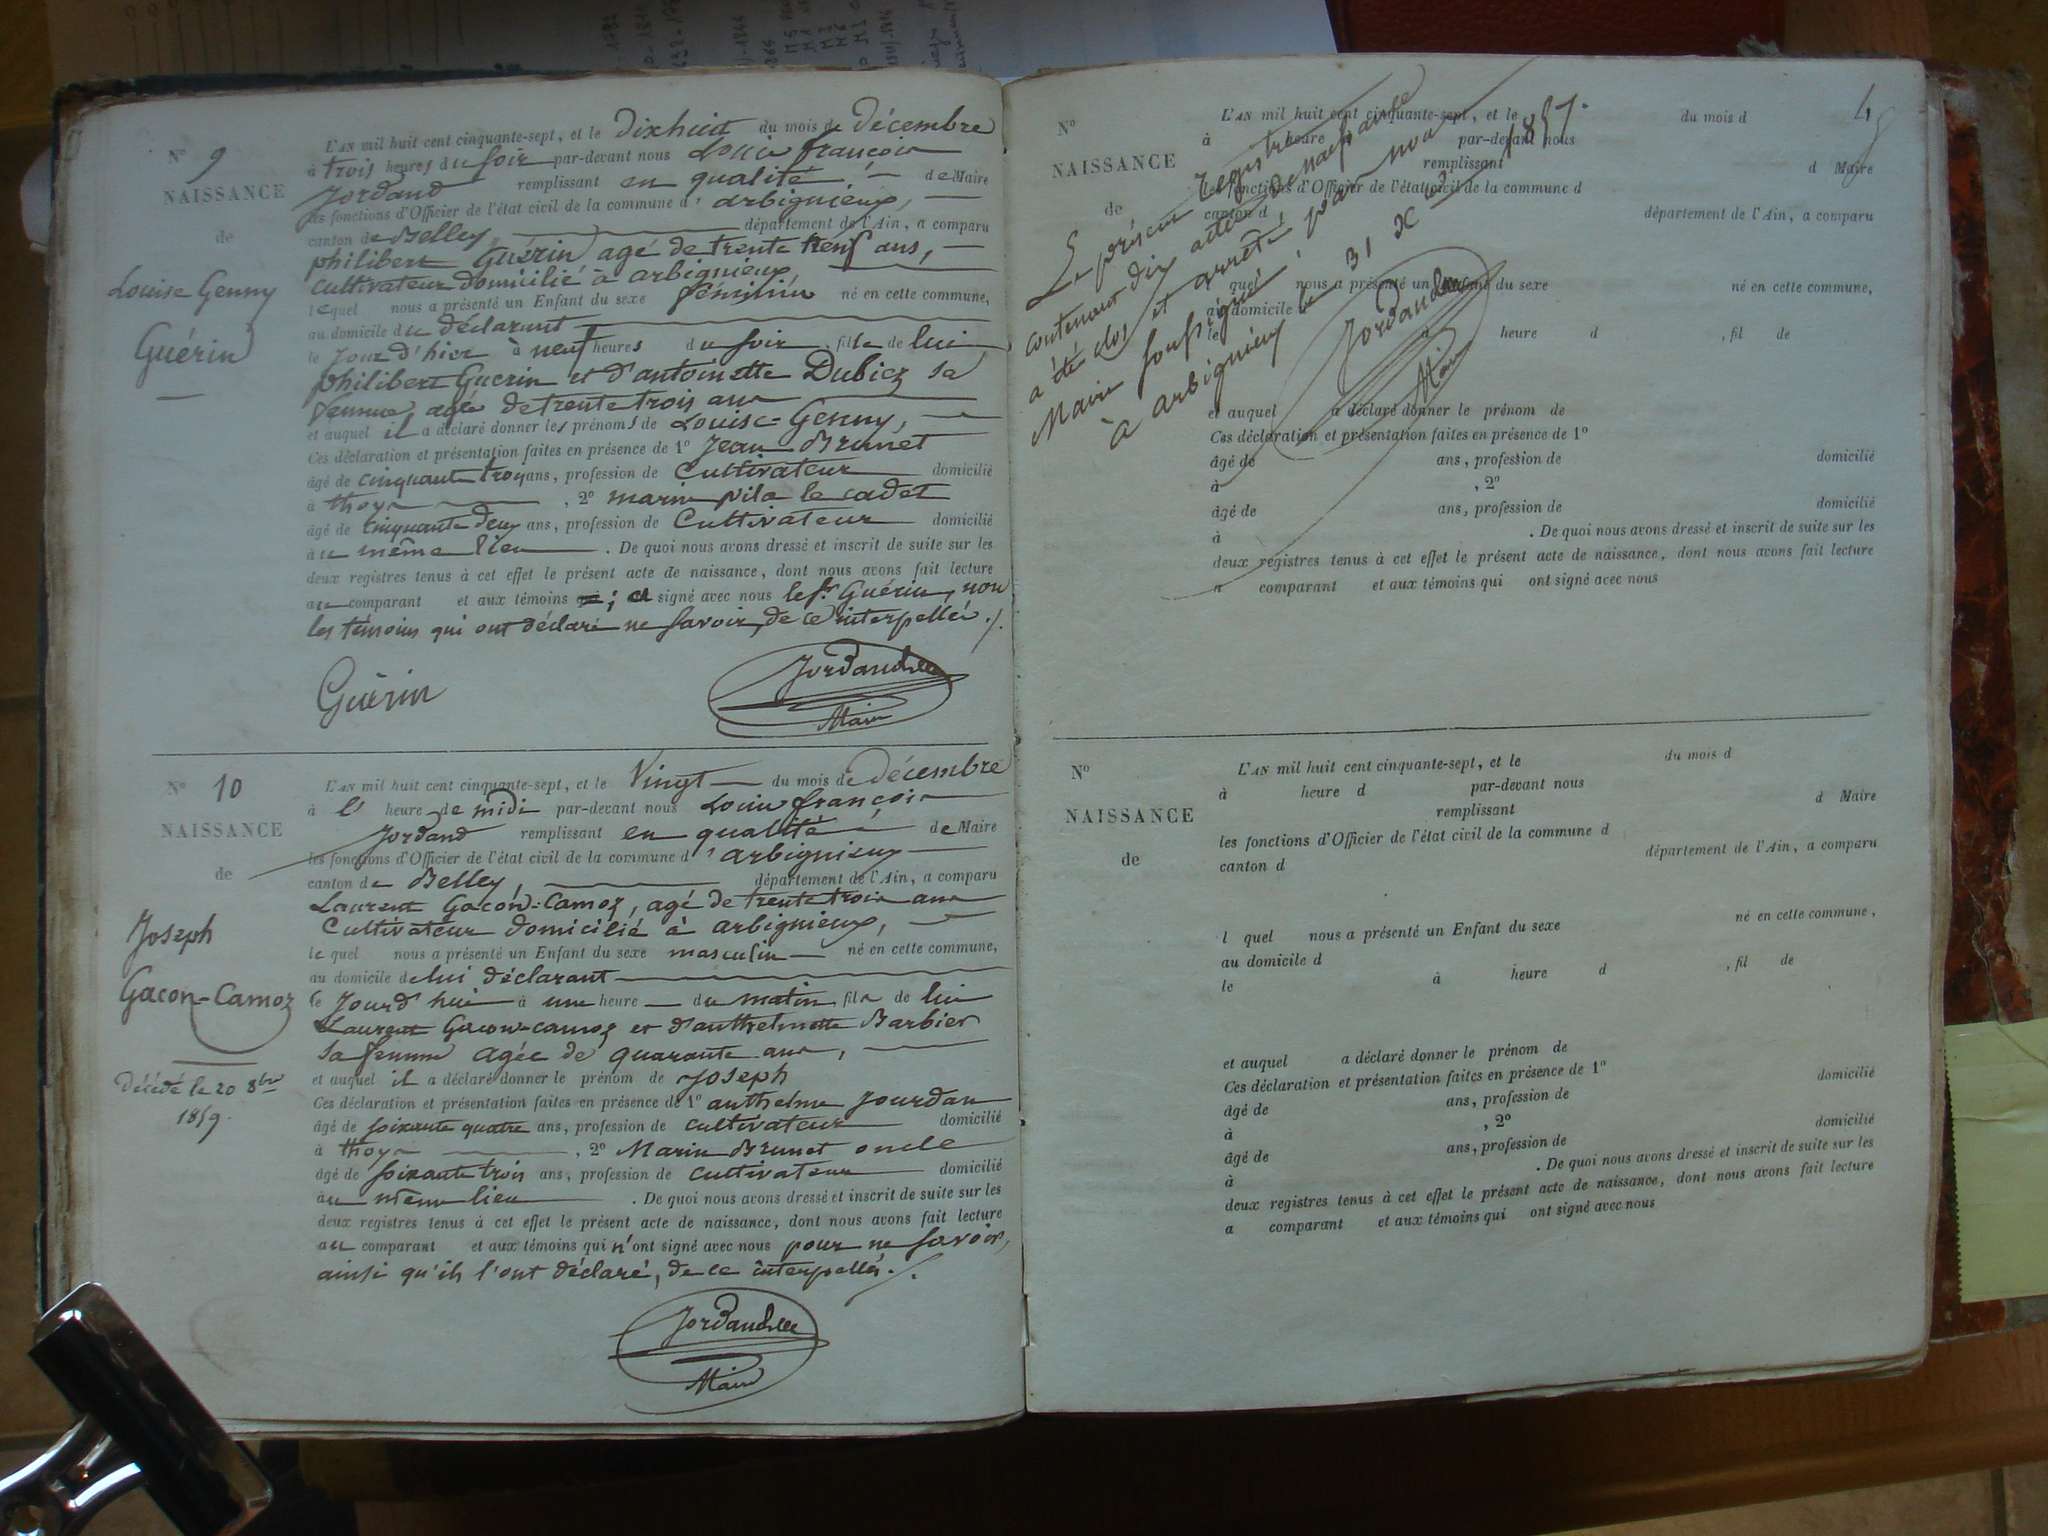 N° 9
NAISSANCE
de
Louise Genny
Guérin
L'AN mil huit cent cinquante-sept, et le Dixhuit du mois de Décembre
à trois heures du soir par-devant nous Louis françois
Jordand remplissant en qualité de Maire
les fonctions d'Officier de l'état civil de la commune d'arbignieux,
canton de Belley, département de l'Ain, a comparu
philibert Guérin agé de trente neuf ans,
cultivateur domicilié à arbignieux,
lequel nous a présenté un Enfant du sexe féminin né en cette commune,
au domicile du déclarant
le Jour d'hier à neuf heures du soir, fille de lui
philibert Guérin et d'antoinette Dubiez sa
femme, agée de trente trois ans
et auquel il a déclaré donner les prénoms de Louise=Genny,
Ces déclaration et présentation faites en présence de 1° Jean Brunet
âgé de cinquante troys ans, profession de Cultivateur domicilié
à thoys, 2° marin pila le cadet
âgé de cinquante deux ans, profession de Cultivateur domicilié
au même lieu. De quoi nous avons dressé et inscrit de suite sur les
deux registres tenus à cet effet le présent acte de naissance, dont nous avons fait lecture
au comparant et aux témoins ; a signé avec nous le sr Guérin, non
les témoins qui ont déclaré ne savoir, de ce interpellés ./.
Guérin
Jordand
Maire
N° 10
NAISSANCE
de
Joseph
Gacon-Camoz
Décédé le 20 8bre
1859.
L'AN mil huit cent cinquante-sept, et le Vingt du mois de Décembre
à l' heure de midi par-devant nous Louis françois
Jordand remplissant en qualité de Maire
les fonctions d'Officier de l'état civil de la commune d'arbignieux
canton de Belley, département de l'Ain, a comparu
Laurent Gacon=Camoz, agé de trente trois ans
Cultivateur domicilié à arbignieux,
lequel nous a présenté un Enfant du sexe masculin né en cette commune,
au domicile de lui déclarant
le Jourd'hui à une heure du matin, fils de lui
Laurent Gacon-camoz et d'anthelmette Barbier
sa femme agée de quarante ans,
et auquel il a déclaré donner le prénom de Joseph
Ces déclaration et présentation faites en présence de 1° anthelme Jourdan
âgé de soixante quatre ans, profession de cultivateur domicilié
à thoys, 2° Marin Brunet oncle
âgé de soixante trois ans, profession de cultivateur domicilié
au même lieu. De quoi nous avons dressé et inscrit de suite sur les
deux registres tenus à cet effet le présent acte de naissance, dont nous avons fait lecture
au comparant et aux témoins qui n'ont signé avec nous pour ne savoir,
ainsi qu'ils l'ont déclaré, de ce interpellés ./.
Jordand
Maire
N°
NAISSANCE
de
L'AN mil huit cent cinquante-sept, et le du mois d
à heure par-devant nous
remplissant d Maire
les fonctions d'Officier de l'état civil de la commune d
canton d département de l'Ain, a comparu
l quel nous a présenté un Enfant du sexe né en cette commune,
au domicile d
le à heure d , fil de
et auquel a déclaré donner le prénom de
Ces déclaration et présentation faites en présence de 1°
âgé de ans, profession de domicilié
à , 2°
âgé de ans, profession de domicilié
à . De quoi nous avons dressé et inscrit de suite sur les
deux registres tenus à cet effet le présent acte de naissance, dont nous avons fait lecture
a comparant et aux témoins qui ont signé avec nous
Le présent Registre
contenant dix actes de naissance
a été clos et arrêté, par nous
Maire soussigné,
à arbignieux le 31 Xbre 1857.
Jordand
Maire
N°
NAISSANCE
de
L'AN mil huit cent cinquante-sept, et le du mois d
à heure d par-devant nous
remplissant d Maire
les fonctions d'Officier de l'état civil de la commune d
canton d département de l'Ain, a comparu
l quel nous a présenté un Enfant du sexe né en cette commune,
au domicile d
le à heure d , fil de
et auquel a déclaré donner le prénom de
Ces déclaration et présentation faites en présence de 1°
âgé de ans, profession de domicilié
à , 2°
âgé de ans, profession de domicilié
à . De quoi nous avons dressé et inscrit de suite sur les
deux registres tenus à cet effet le présent acte de naissance, dont nous avons fait lecture
a comparant et aux témoins qui ont signé avec nous